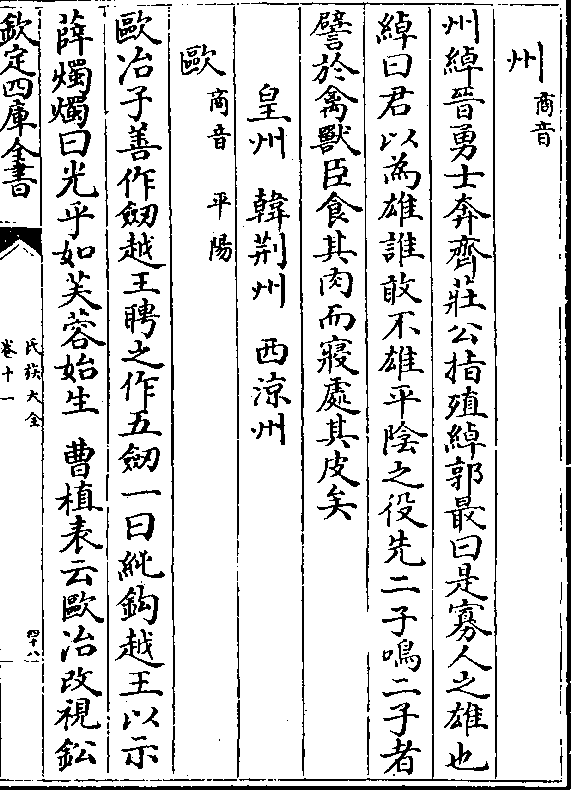 州 商音
州綽晉勇士奔齊莊公指殖綽郭最曰是寡人之雄也
綽曰君以為雄誰敢不雄平陰之役先二子鳴二子者
譬於禽獸臣食其肉而寢處其皮矣
皇州 韓荆州 西涼州
歐 商音 平陽
歐冶子善作劒越王聘之作五劒一曰純鈎越王以示
薛燭燭曰光乎如芙蓉始生 曹植表云歐冶改視鈆
欽定四庫全書
氏族大全
卷十一
四十八